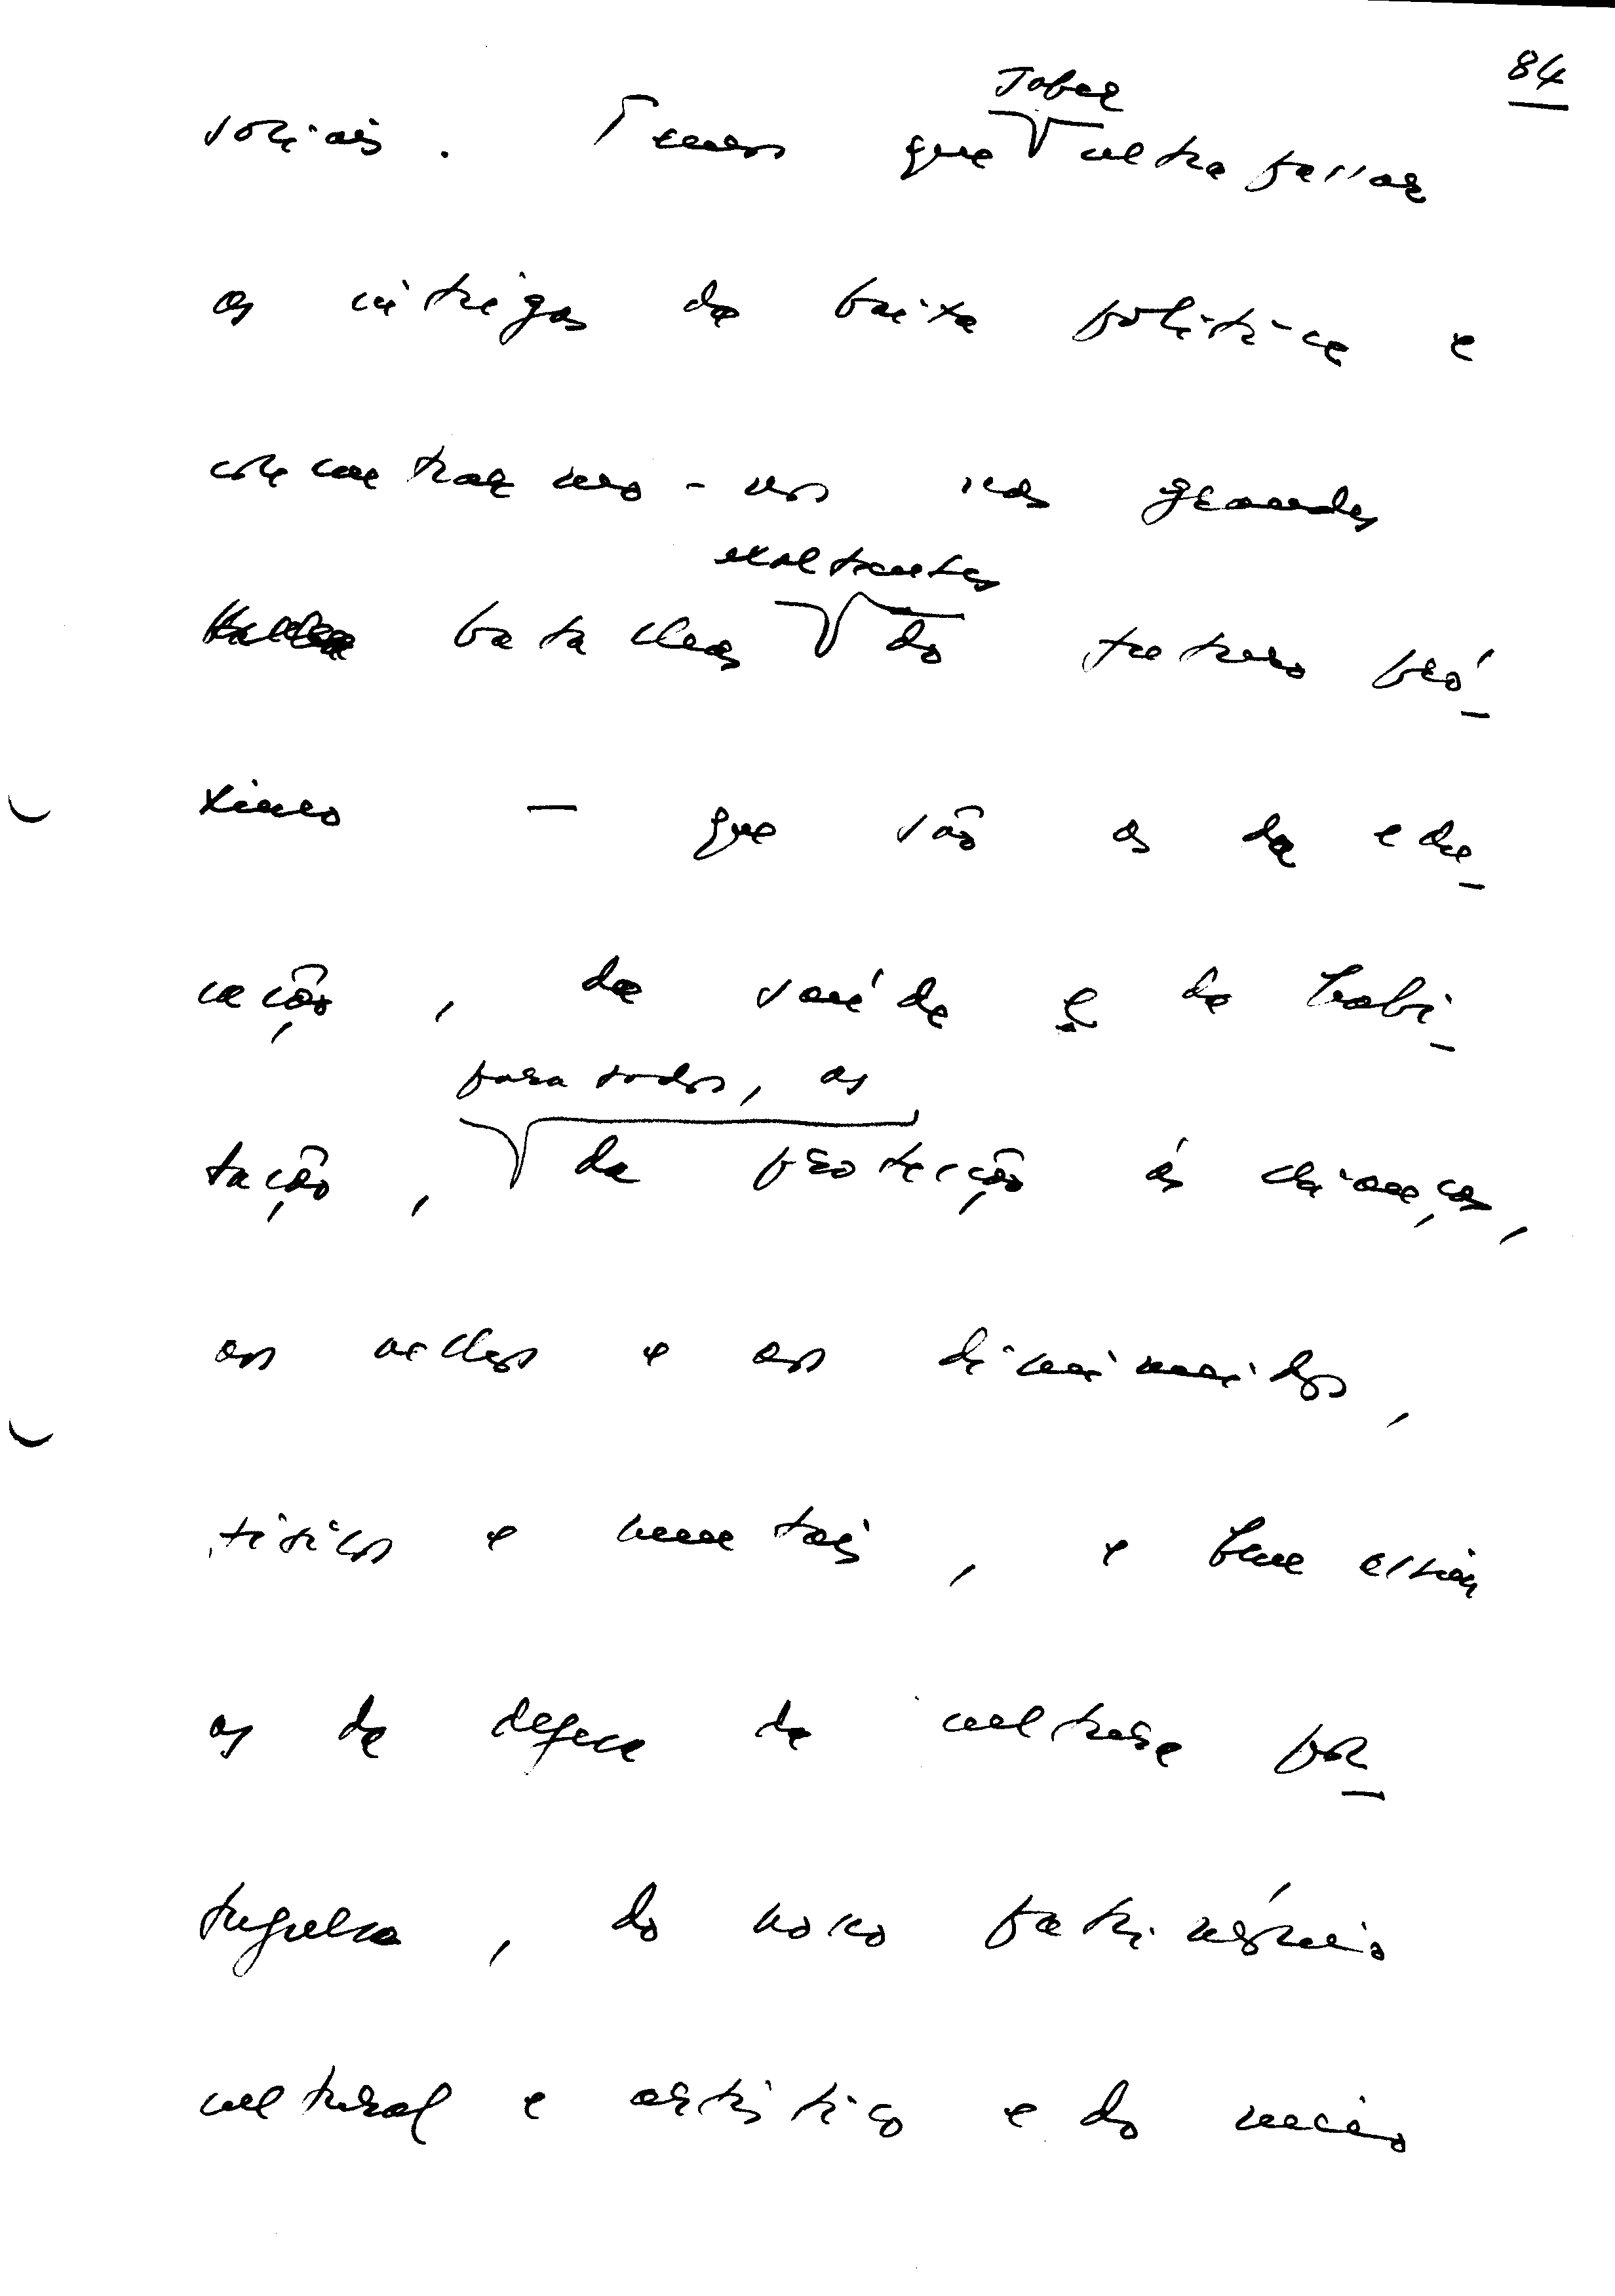 84
saber
sociais. Temos que ultrapassar
as intrigas da baixa política e
concentrarmo-nos nas grandes
exaltantes
batalhas do futuro pró-
ximo — que são as da edu-
cação, da saúde e da habi-
para todos, as
tação, da protecção às crianças,
aos velhos e aos diminuídos,
físicos e mentais, e bem assim
as da defesa da cultura por-
tuguesa, do nosso património
cultural e artístico e do meio